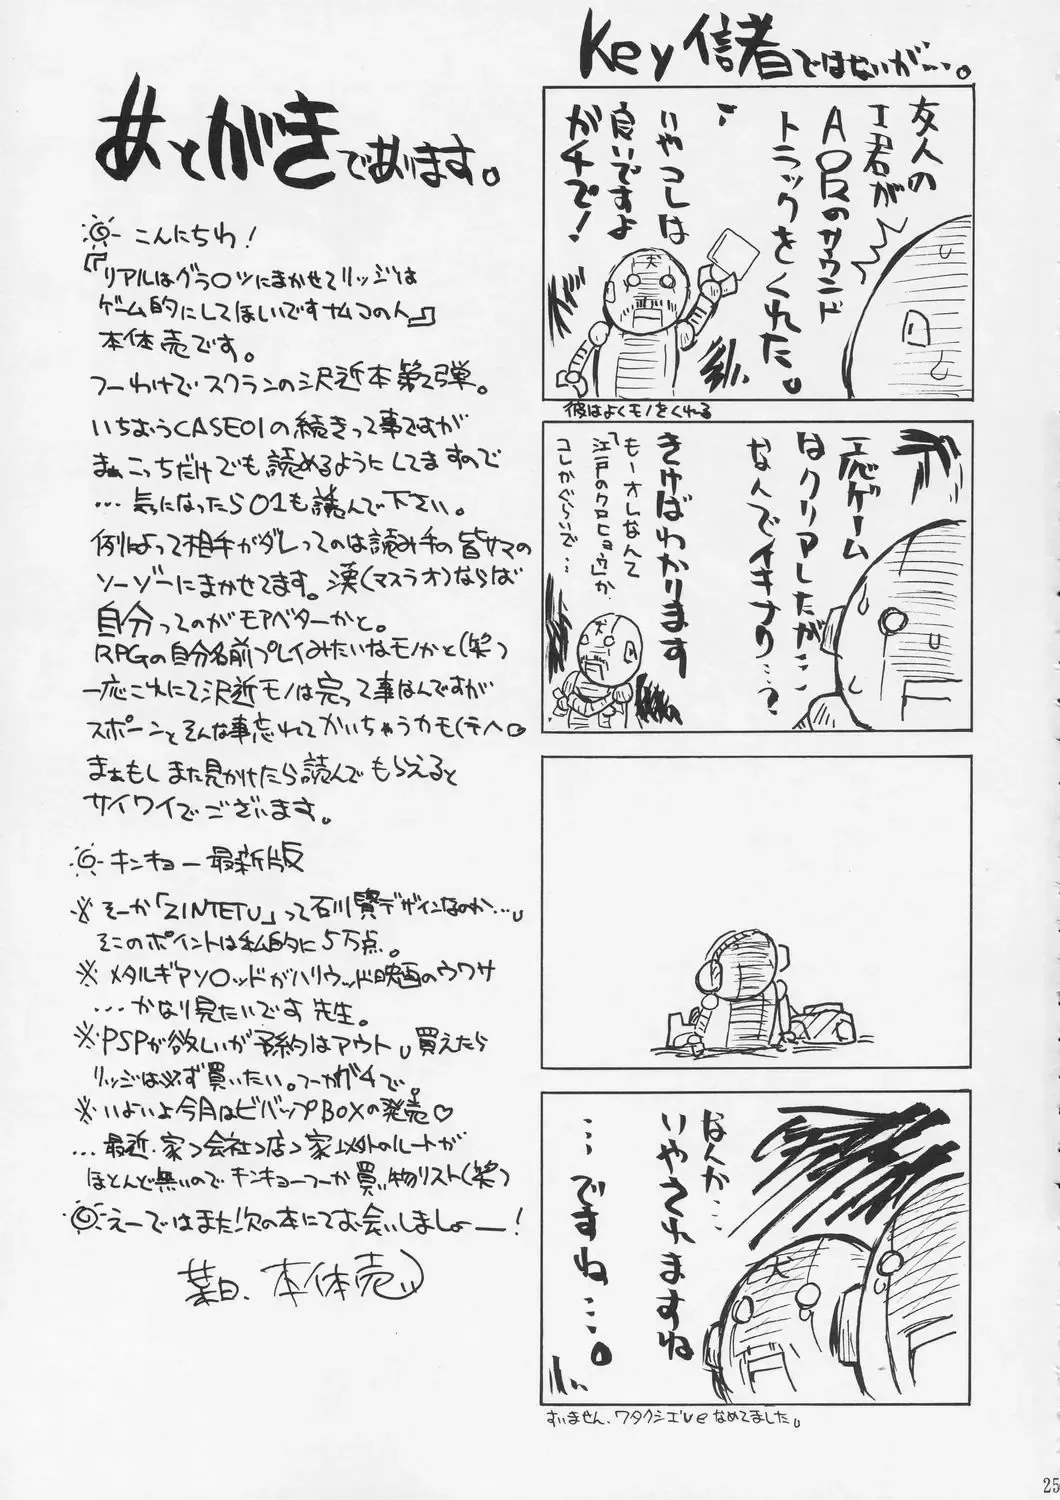 Key信者ではないが…。
友人の
工君が
AIRのサウンド
トラックをくれた。
いやコレは
良いですよ
ガチで！
犬
彼はよくモノをくれる
応ゲーム
はクリアしたが…
なんでイキナリ…？
きけばわかります
もーオレなんて
「江戸のクロヒョウ」か
コレかぐらいで…
犬
なんか…
いやされますね
…ですね…。
犬
すいません、ワタクシ
なめてました。
あとがきであります。
こんにちわ！
『リアルはグラ○ツにまかせてリッジは
ゲーム的にしてほしいですナムコの人』
本体売です。
つーわけでスクランの沢近本第2弾。
いちおうCASE01の続きって事ですが
まぁこっちだけでも読めるようにしてますので
…気になったら01も読んで下さい。
例によって相手がダレってのは読み手の皆サマの
ソーゾーにまかせてます。漢(マスラオ)ならば
自分ってのがモアベターかと。
RPGの自分名前プレイみたいなモノかと(笑)
一応これにて沢近モノは完って事なんですが
スポーンとそんな事忘れてかいちゃうカモ(テヘ。
まぁもしまた見かけたら読んでもらえると
サイワイでございます。
キンキョー最新版
※そーか「ZINTETU」って石川賢デザインなのか…。
そこのポイントは私的に5万点。
※メタルギアソ○ッドがハリウッド映画のウワサ
…かなり見たいです先生。
※PSPが欲しいが予約はアウト。買えたら
リッジは必ず買いたい。つーかガチで。
※いよいよ今月はビバップBOXの発売♡
…最近、家→会社→店→家以外のルートが
ほとんど無いのでキンキョーつーか買い物リスト(笑)
えーではまた次の本にてお会いしましょー！
某日、本体売
25